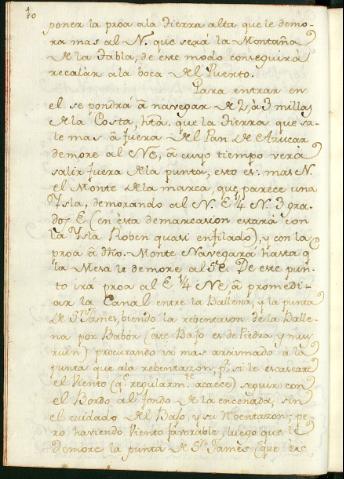 40
poner la proa ala tierra alta que le demo-
ra mas al N. que será la Montaña
de la Tabla, de este modo conseguira
recalar ala boca del Puerto.
Para entrar en
el se pondrá a navegar de 2, a 3 millas
de la Costa, hta. que la tierra que sa-
le mas a fuera del Pan de Azucar
demore al NE, a cuyo tiempo verá
salir fuera de la punta, esto es: mas N.
el Monte de la marca, que parece una
Ysla, demorando al N. E ¼ N. 3 gra-
dos E (en esta demarcasion estará con
la Ysla Roben quasi enfilado), y con la
proa a dho. Monte Navegará hasta q
la Mesa le demore al De este pun-
to irá proa al E ¼ NE a promedi-
ar la Canal entre la Ballena, y la punta
de Sn. James, biendo la rebentason de la Balle-
na por Babor (este Bajo es de Piedra, y muy
ruin) procurando ir mas arrimado a la
punta que ala rebentazon, p. si le escaseare
el Viento (q. regularm. acaece) seguir con
el Bordo al fondo de la encenada, sin
el cuidado del Bajo, y su Rebentazon; pe-
ro haviendo Viento favorable, luego que le
demore la punta de Sn. James (que es